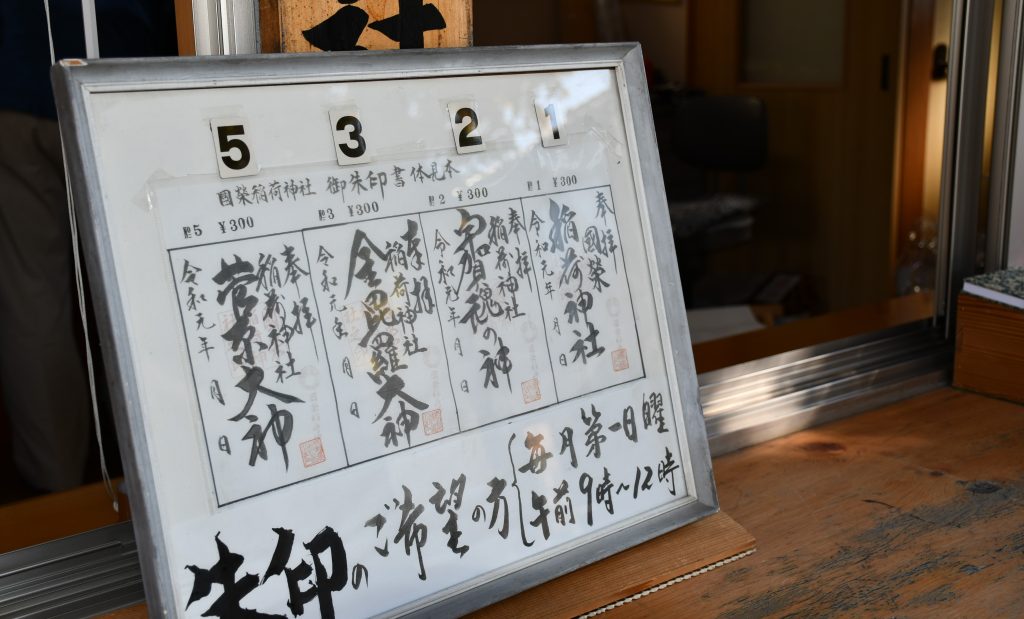 5 3 2 1
國榮稲荷神社 御朱印書体見本
№1 ¥300
奉拝
國榮
稲荷神社
令和元年 月 日
№2 ¥300
奉拝
稲荷神社
宇賀魂の神
令和元年 月 日
№3 ¥300
奉拝
稲荷神社
金毘羅大神
令和元年 月 日
№5 ¥300
奉拝
稲荷神社
大神
令和元年 月 日
朱印のご希望の方
毎月第一日曜
午前9時〜12時